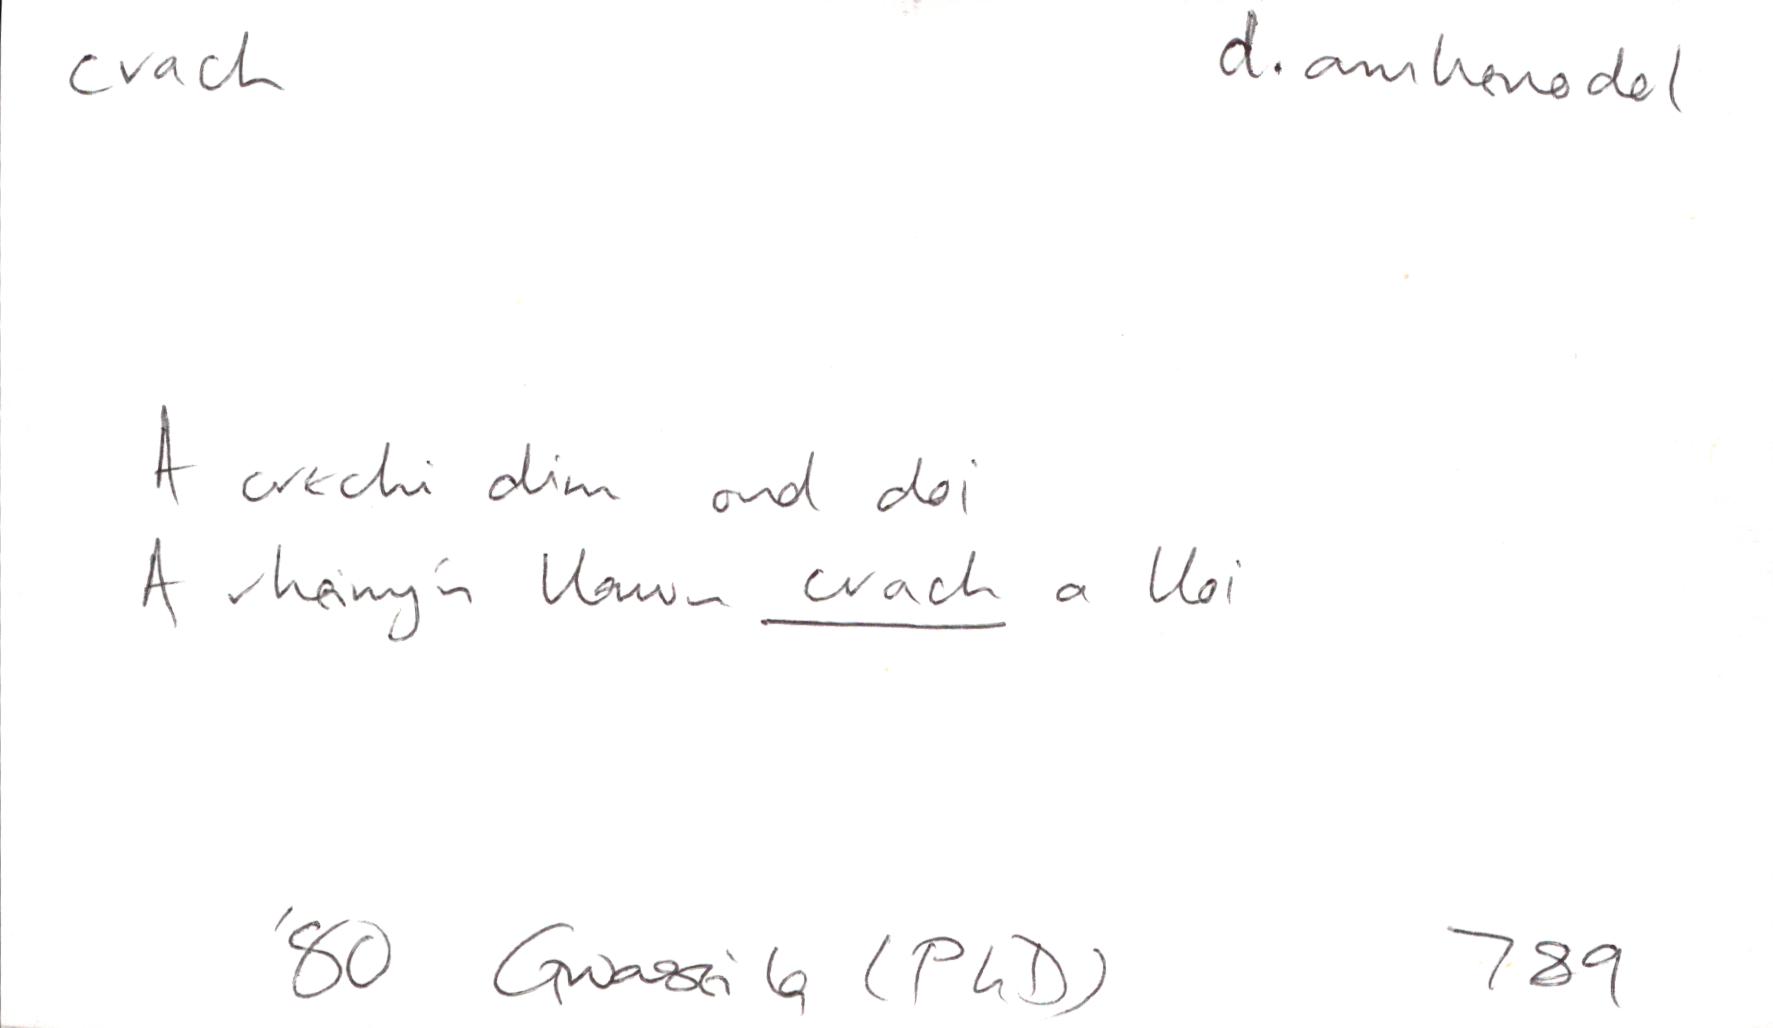 crach d. amhenodol
A crechi dim ond doi
A rheiny'n llawn crach a lloi
'80 Gwassila (PhD) 789